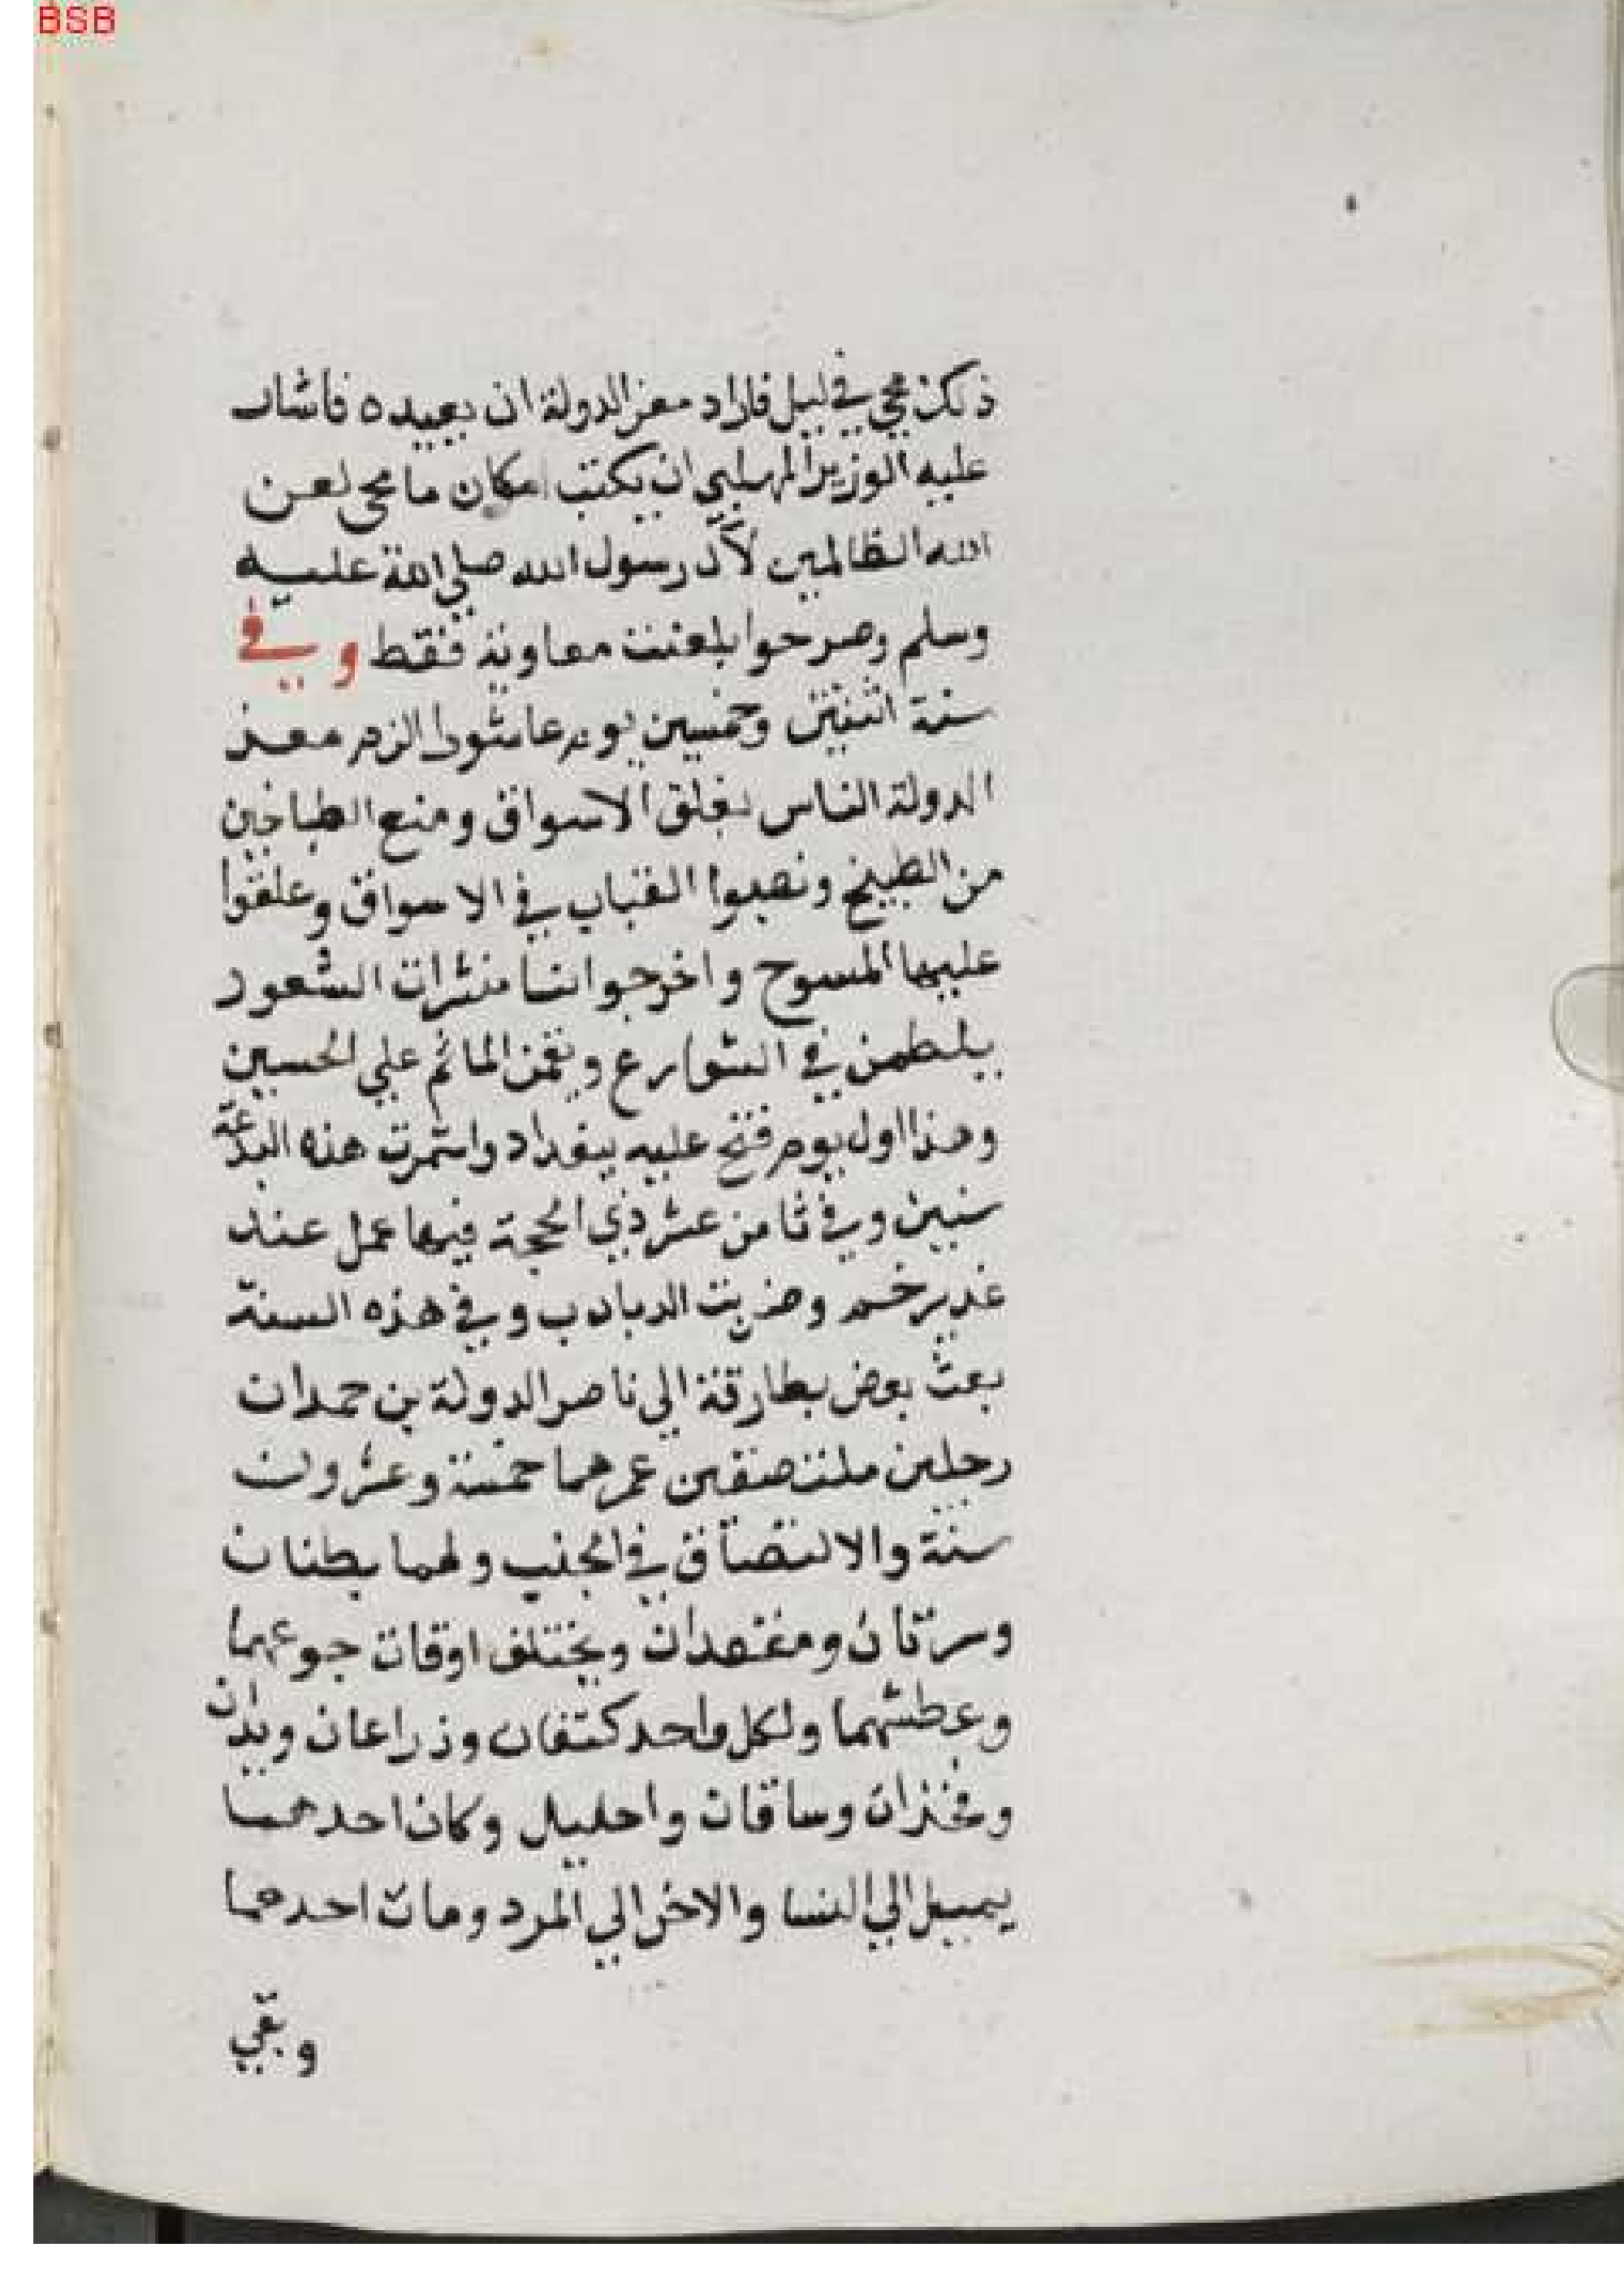 BSB
ذكك محي في ليل فاراد معز الدولة ان يعيده فاشار
عليه الوزير المهلبي ان يكتب مكان ما محي لعن
الله الظالمين لآل رسول الله صلي الله عليه
وسلم وصرحوا بلعنت معاوية فقط وفي
سنة اثنتين وخمسين يوم عاشورا الزم معز
الدولة الناس بغلق الاسواق ومنع الطباخين
من الطبيخ ونصبوا القباب في الاسواق وعلقوا
عليها المسوح واخرجوا نسا منشرات الشعور
يلطمن في الشوارع ويقمن المائم علي الحسين
وهذا اول يوم فتح عليه ببغداد واستمرت هذه البدعة
سنين وفي ثامن عشر ذي الحجة فيها عمل عند
غدير خم وضربت الدبادب وفي هذه السنة
بعث بعض بطارقة الي ناصر الدولة بن حمدان
رجلين ملتصقين عمرهما خمسة وعشرون
سنة والالتصاق في الجنب ولهما بطنان
وسرتان ومعقدان ويختلف اوقات جوعهما
وعطشهما ولكل واحد كتفان وذراعان ويدان
وفخذان وساقان واحليل وكان احدهما
يميل الي النسا والاخر الي المرد ومات احدهما
وبقي